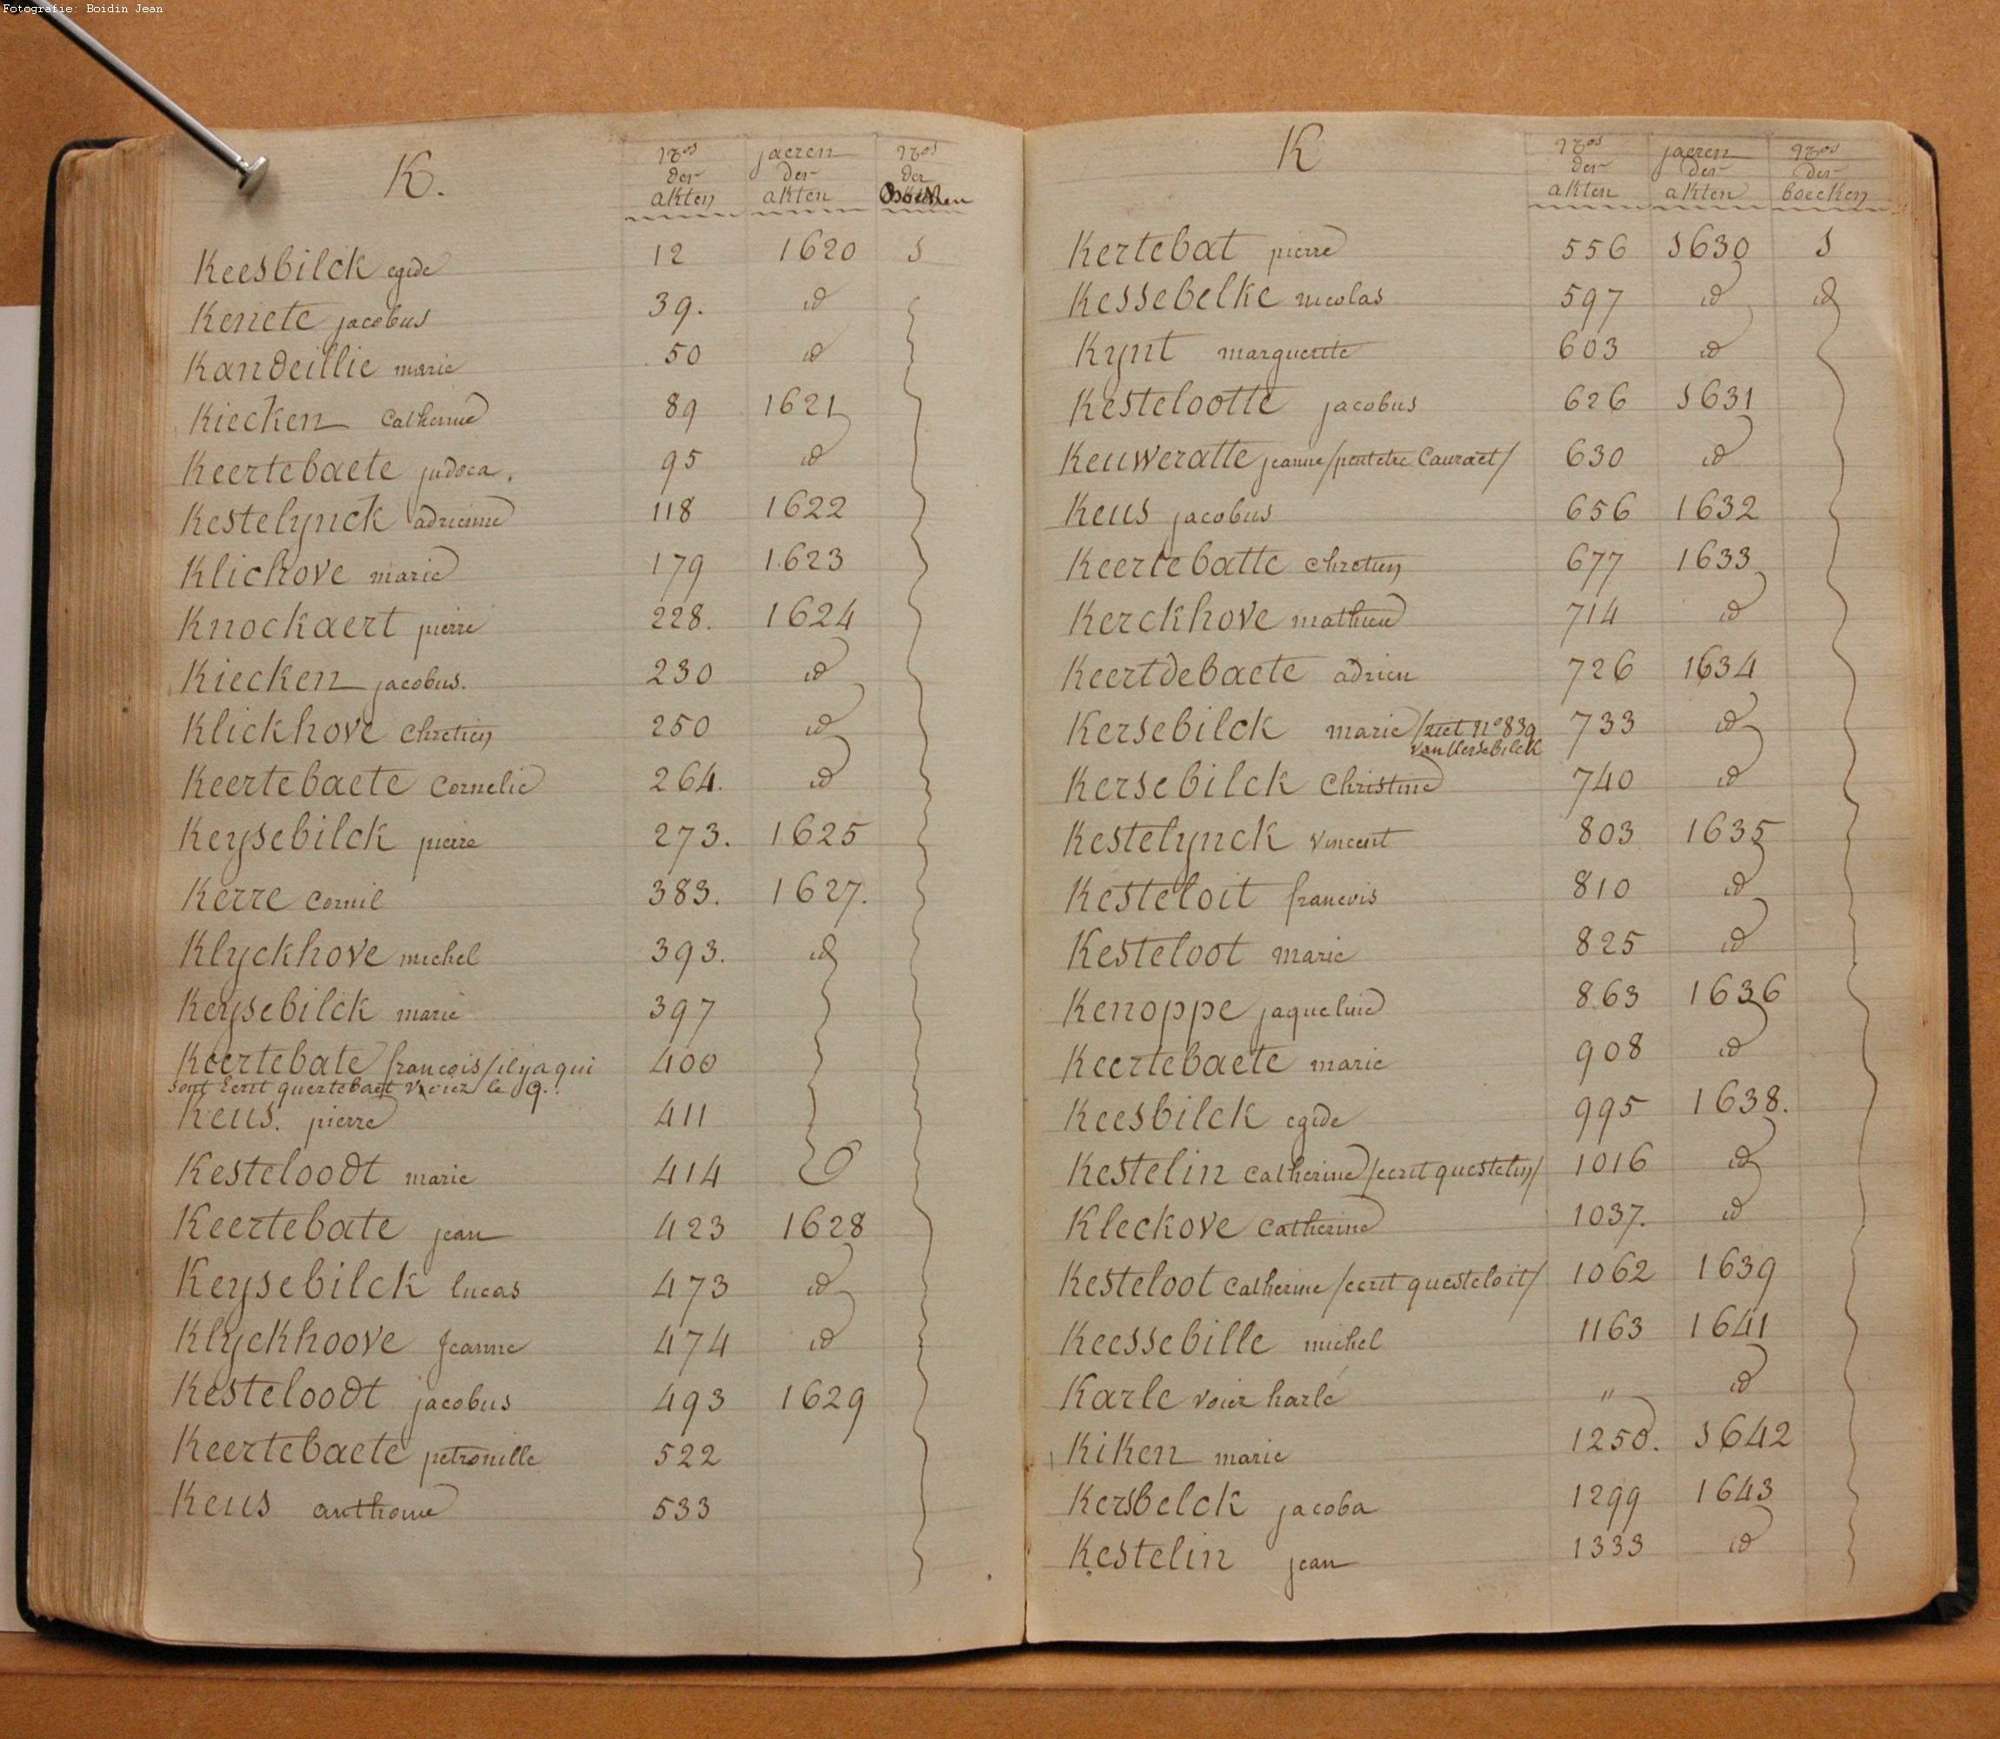 Fotografie: Boidin Jean
K.
Nros der akten
jaeren der akten
Nros der boecken
Keesbilck egide 12 1620 1
Kenete jacobus 39. id
Kandeillie marie 50 id
Kiecken Catherine 89 1621
Keertebaete judoca. 95 id
Kestelynck adrienne 118 1622
Klickove marie 179 1623
Knockaert pierre 228. 1624
Kiecken jacobus. 230 id
Klickhove Chretien 250 id
Keertebaete Cornelie 264. id
Keysebilck pierre 273. 1625
Kerre Cornil 383. 1627.
Klyckhove michel 393. id
Keysebilck marie 397
Keertebate francois / il y a qui 400
sont Ecrit quertebaet voiez le q.
Keus. pierre 411
Kesteloodt marie 414
Keertebate jean 423 1628
Keysebilck lucas 473 id
Klyckhoove Jeanne 474 id
Kesteloodt jacobus 493 1629
Keertebaete petronille 522
Keus anthoine 533
K
Nros der akten
jaeren der akten
Nros der boecken
Kertebat pierre 556 1630 1
Kessebelke nicolas 597 id id
Kynt marguerite 603 id
Kestelootte jacobus 626 1631
Keuweratte jeanne /peutetre Cauraet/ 630 id
Keus jacobus 656 1632
Keertebatte Chretien 677 1633
Kerckhove mathieu 714 id
Keertdebaete adrien 726 1634
Kersebilck marie /ziet No 839 733 id
van Kersebilck
Kersebilck Christine 740 id
Kestelynck Vincent 803 1635
Kesteloit francois 810 id
Kesteloot marie 825 id
Kenoppe jaqueline 863 1636
Keertebaete marie 908 id
Keesbilck egide 995 1638.
Kestelin Catherine /ecrit questelin/ 1016 id
Kleckove Catherine 1037. id
Kesteloot Catherine /ecrit questeloit/ 1062 1639
Keessebille michel 1163 1641
Karle voiez harlé " id
Kiken marie 1250. 1642
Kersbelck jacoba 1299 1643
Kestelin jean 1333 id